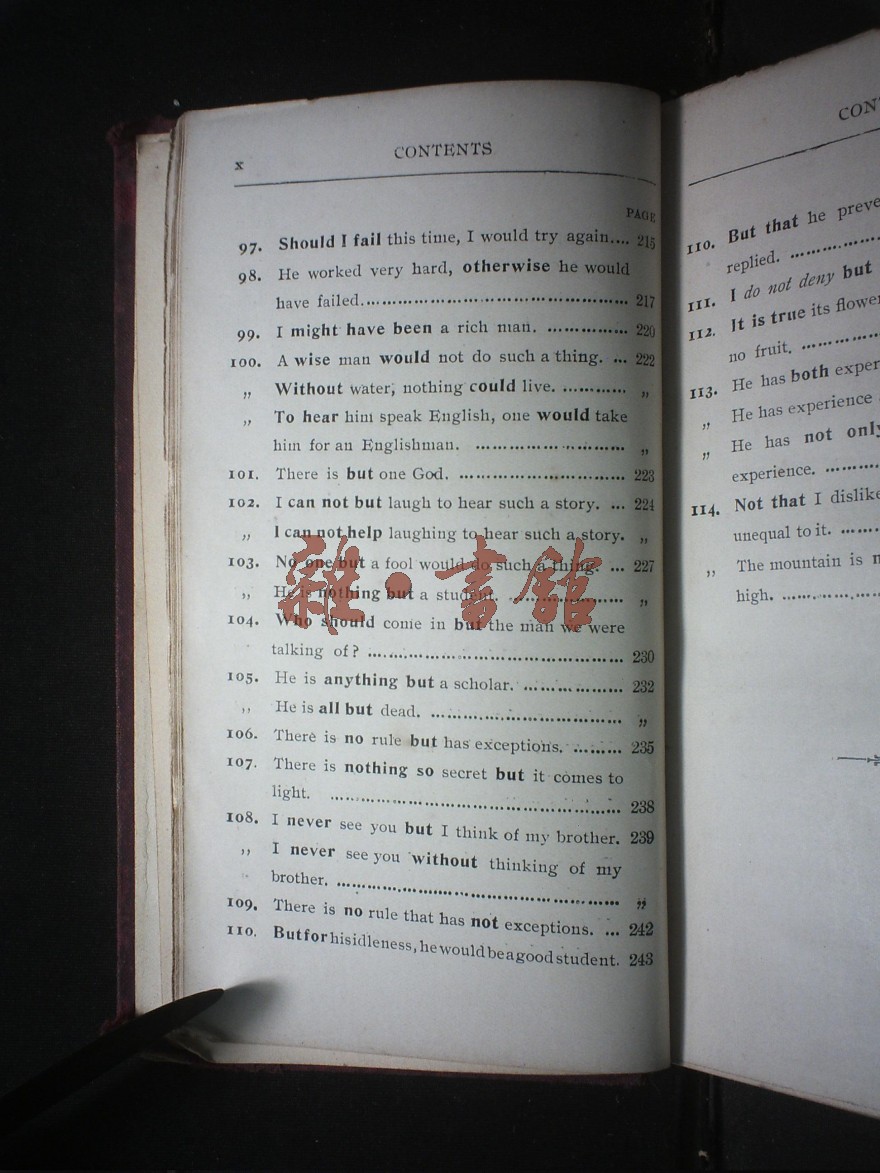 x
CONTENTS
PAGE
97. Should I fail this time, I would try again.... 215
98. He worked very hard, otherwise he would
have failed................................................ 217
99. I might have been a rich man. ............... 220
100. A wise man would not do such a thing. ... 222
„ Without water, nothing could live. ............ „
„ To hear him speak English, one would take
him for an Englishman. ........................... „
101. There is but one God. .............................. 223
102. I can not but laugh to hear such a story. ... 224
„ I can not help laughing to hear such a story. „
103. No one but a fool would do such a thing. ... 227
„ He is nothing but a student. ..................... „
104. Who should come in but the man we were
talking of? .............................................. 230
105. He is anything but a scholar. .................. 232
„ He is all but dead. ................................... „
106. There is no rule but has exceptions. ......... 235
107. There is nothing so secret but it comes to
light. ..................................................... 238
108. I never see you but I think of my brother. 239
„ I never see you without thinking of my
brother. ................................................... „
109. There is no rule that has not exceptions. ... 242
110. But for his idleness, he would be a good student. 243
雜·書館
110. But that he
replied. ................
111. I do not deny but
112. It is true its
no fruit. ..............
113. He has both
„ He has experience
„ He has not
experience. ..........
114. Not that I
unequal to it. .......
„ The mountain is
high. ...................